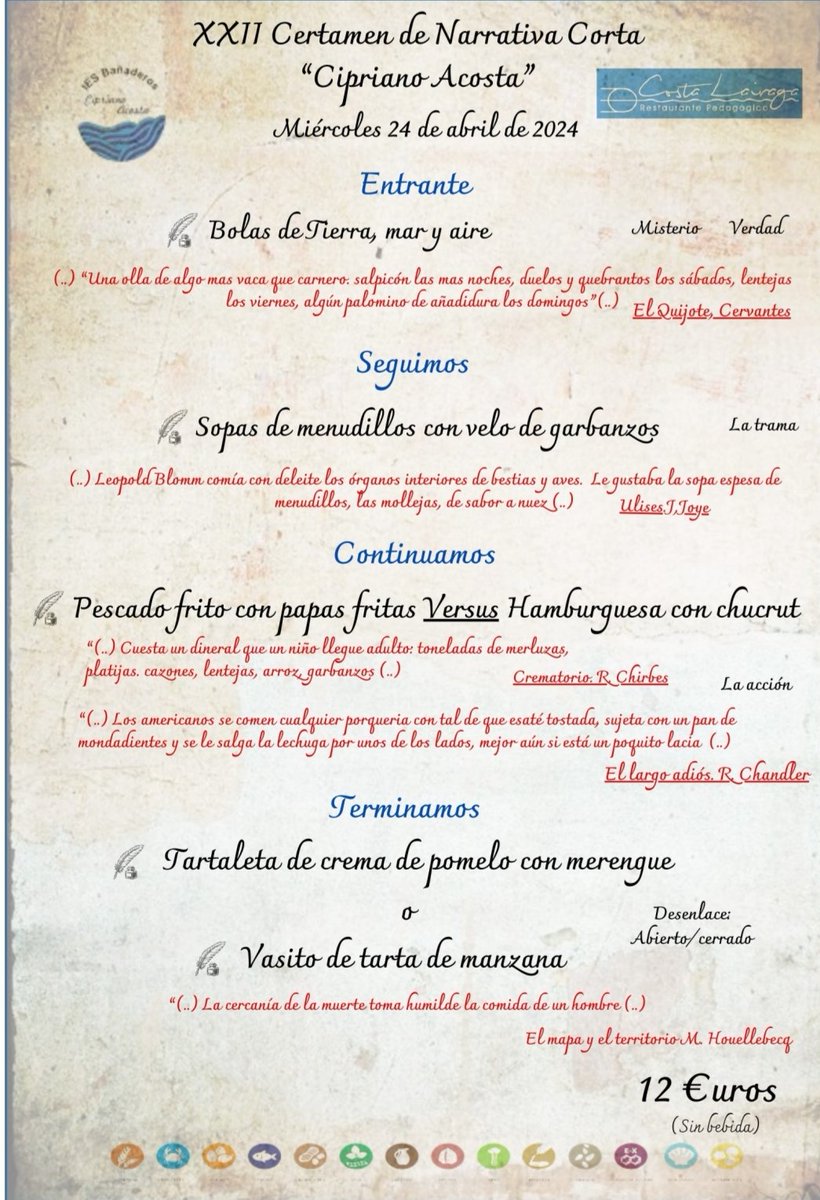 XXII Certamen de Narrativa Corta
“Cipriano Acosta”
Miércoles 24 de abril de 2024
IES Bañaderos
Cipriano
Acosta
Costa Lairaga
Restaurante Pedagógico
Entrante
Bolas de Tierra, mar y aire
Misterio Verdad
(..) “Una olla de algo mas vaca que carnero. salpicón las mas noches, duelos y quebrantos los sábados, lentejas
los viernes, algún palomino de añadidura los domingos”(..)
El Quijote, Cervantes
Seguimos
Sopas de menudillos con velo de garbanzos
La trama
(..) Leopold Blomm comía con deleite los órganos interiores de bestias y aves. Le gustaba la sopa espesa de
menudillos, las mollejas, de sabor a nuez (..)
Ulises.J,Joye
Continuamos
Pescado frito con papas fritas Versus Hamburguesa con chucrut
“(..) Cuesta un dineral que un niño llegue adulto: toneladas de merluzas,
platijas. cazones, lentejas, arroz, garbanzos (..)
Crematorio. R, Chirbes
La acción
“(..) Los americanos se comen cualquier porqueria con tal de que esaté tostada, sujeta con un pan de
mondadientes y se le salga la lechuga por unos de los lados, mejor aún si está un poquito lacia (..)
El largo adiós. R, Chandler
Terminamos
Tartaleta de crema de pomelo con merengue
o
Desenlace:
Abierto/cerrado
Vasito de tarta de manzana
“(..) La cercanía de la muerte toma humilde la comida de un hombre (..)
El mapa y el territorio M. Houellebecq
12 €uros
(Sin bebida)